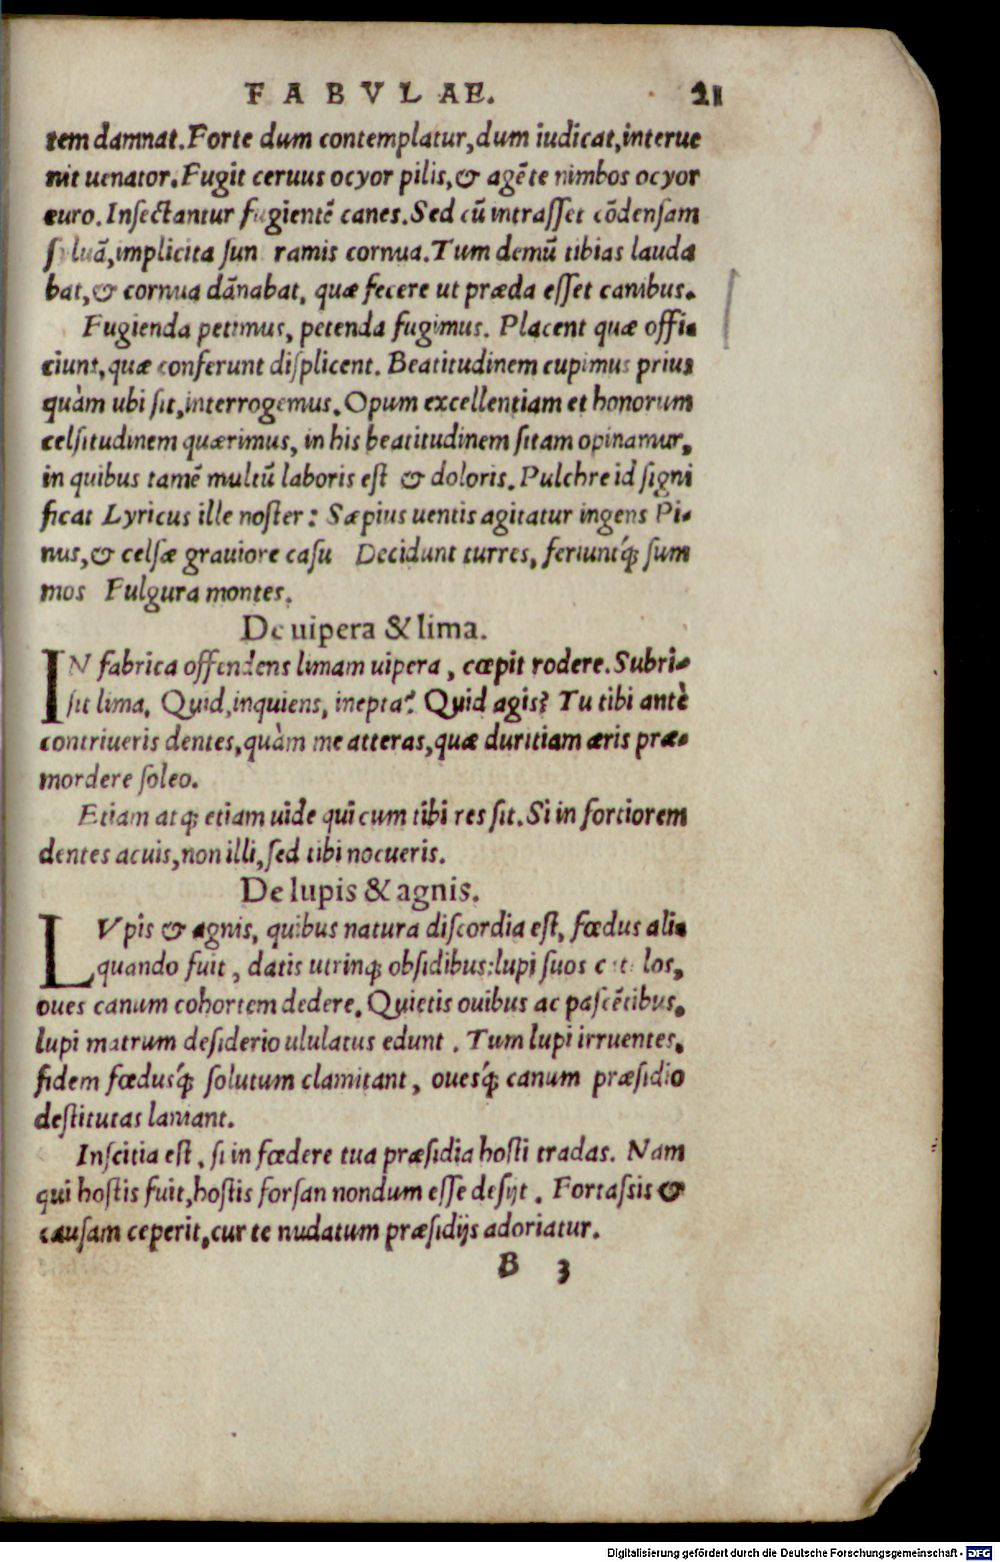 FABVLAE. 21
tem damnat. Forte dum contemplatur, dum iudicat, interue
nit uenator. Fugit ceruus ocyor pilis, & agẽte nimbos ocyor
euro. Insectantur fugientẽ canes. Sed cũ intrasset cõdensam
syluã, implicita sunt ramis cornua. Tum demũ tibias lauda
bat, & cornua dãnabat, quæ fecere ut præda esset canibus.
Fugienda petimus, petenda fugimus. Placent quæ offi-
ciunt, quæ conferunt displicent. Beatitudinem cupimus prius
quàm ubi sit, interrogemus. Opum excellentiam et honorum
celsitudinem quærimus, in his beatitudinem sitam opinamur,
in quibus tamẽ multũ laboris est & doloris. Pulchre id signi
ficat Lyricus ille noster: Sæpius uentis agitatur ingens Pi-
nus, & celsæ grauiore casu Decidunt turres, feriuntq́; sum
mos Fulgura montes.
De uipera & lima.
IN fabrica offendens limam uipera, cœpit rodere. Subri-
sit lima, Quid, inquiens, inepta? Quid agis? Tu tibi antè
contriueris dentes, quàm me atteras, quæ duritiam æris præ-
mordere soleo.
Etiam atq; etiam uide qui cum tibi res sit. Si in fortiorem
dentes acuis, non illi, sed tibi nocueris.
De lupis & agnis.
LVpis & agnis, quibus natura discordia est, fœdus ali-
quando fuit, datis utrinq; obsidibus: lupi suos catulos,
oues canum cohortem dedere. Quietis ouibus ac pascẽtibus,
lupi matrum desiderio ululatus edunt. Tum lupi irruentes,
fidem fœdusq́; solutum clamitant, ouesq́; canum præsidio
destitutas laniant.
Inscitia est, si in fœdere tua præsidia hosti tradas. Nam
qui hostis fuit, hostis forsan nondum esse desijt. Fortassis &
causam ceperit, cur te nudatum præsidijs adoriatur.
B 3
Digitalisierung gefördert durch die Deutsche Forschungsgemeinschaft - DFG